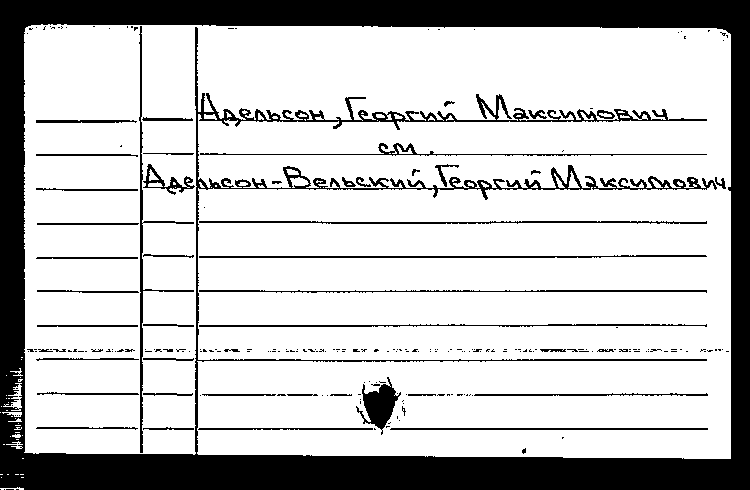 Адельсон, Георгий Максимович
см.
Адельсон-Вельский, Георгий Максимович.